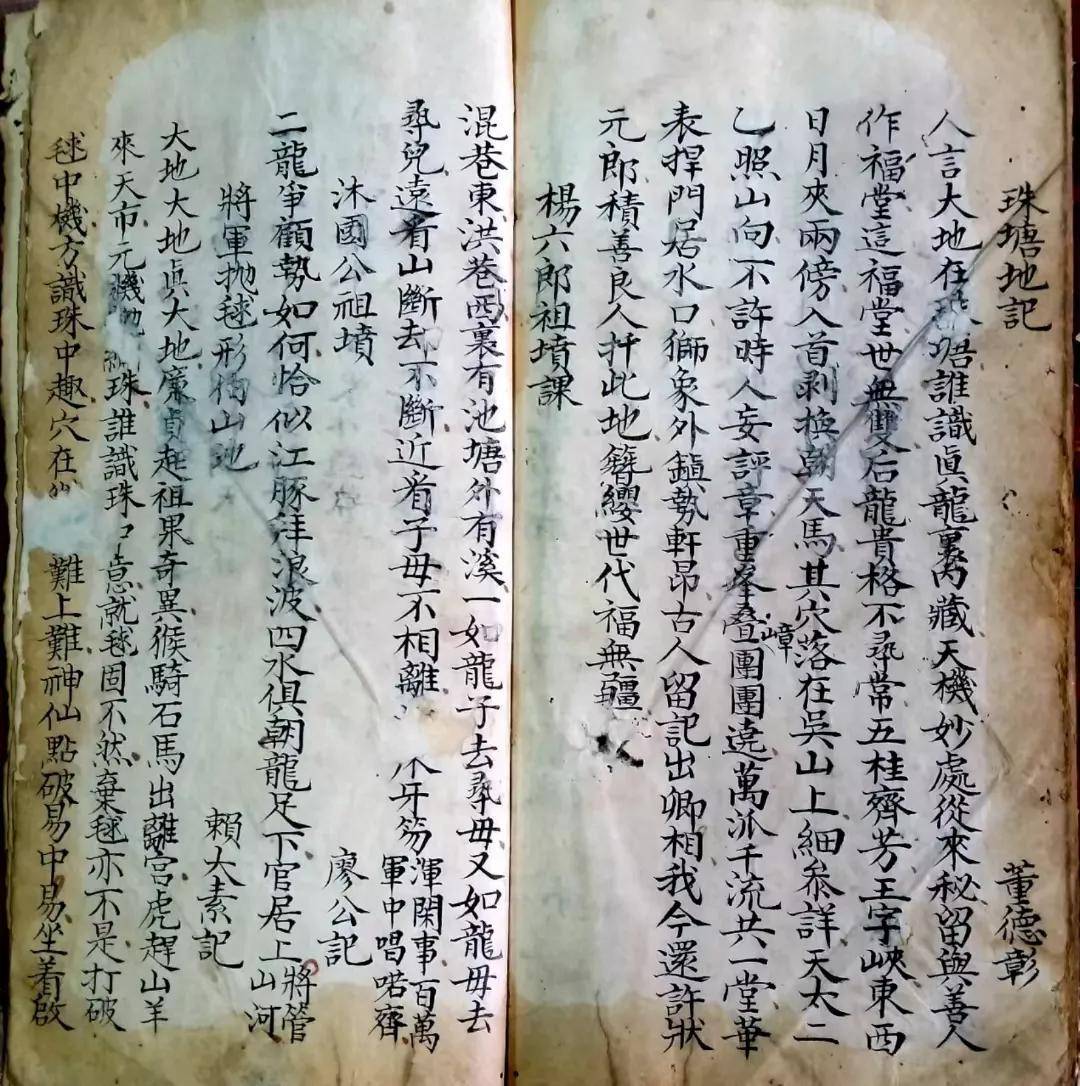 珠塘地記 董德彰
人言大地在珠塘誰識眞龍裏萬藏天機妙處從來秘留與善人
作福堂這福堂世無雙后龍貴格不尋常五桂齊芳王字峽東西
日月夾兩傍入首剥換朝天馬其穴落在吳山上細叅詳天太二
乙照山向不許時人妄評章重峯叠嶂團團遶萬派千流共一堂華
表捍門居水口獅象外鎮勢軒昂古人留記出卿相我今還許狀
元郎積善良人扦此地簪纓世代福無疆
楊六郎祖墳課
混巷東洪巷西裏有池塘外有溪一如龍子去尋毋又如龍毋去
尋兒遠看山斷去不斷近看子毋不相離 牙笏渾閑事百萬軍中唱喏齊
沐國公祖墳 廖公記
二龍爭顧勢如何恰似江豚拜浪波四水俱朝龍足下官居上將管山河
將軍抛毬形 山地 賴太素記
大地大地眞大地廉貞起祖果奇異猴騎石馬出離宮虎趕山羊
來天市元機 珠誰識珠 意就毬固不然棄毬亦不是打破
毬中機方識珠中趣穴在 難上難神仙點破易中易坐着啟